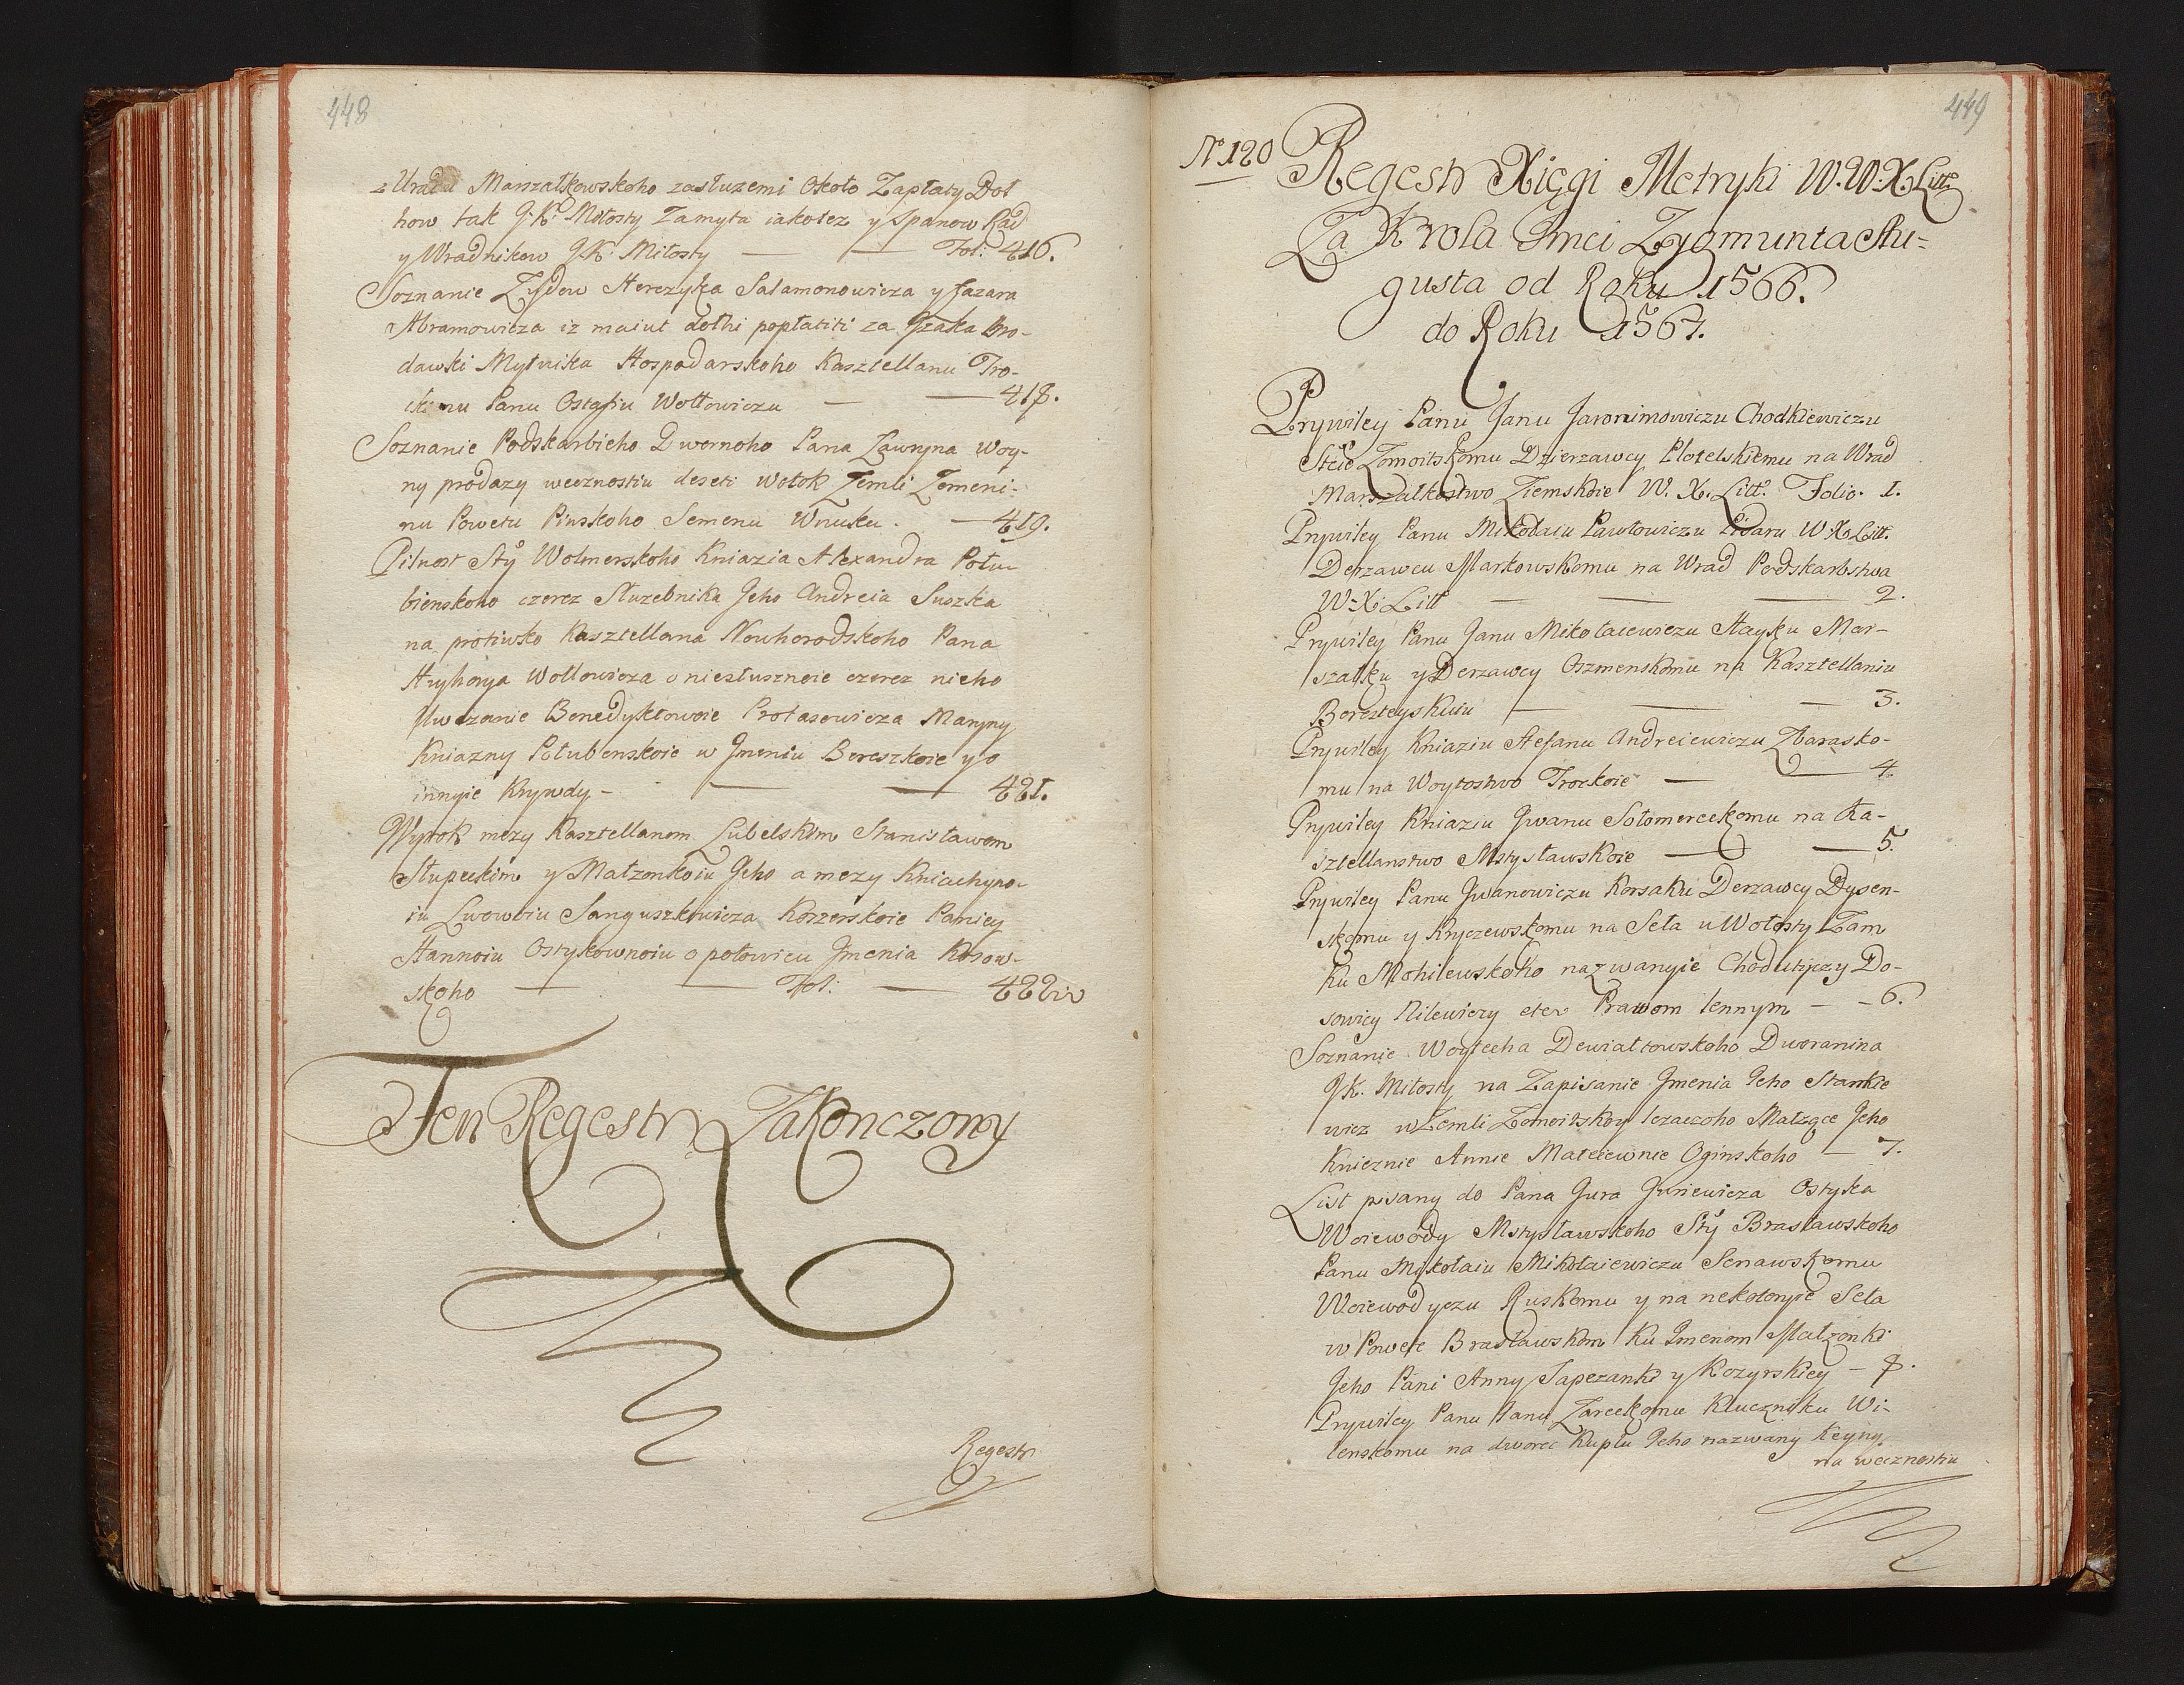 448
z Uradu Marszałkowskoho zasłuzemi Około Zapłaty Doł
how tak J. K. Miłosty Zamyta iakotez y Spanow Rad
y Uradnikow J K Miłosty — — Fol: 416.
Soznanie Zydow Herczyka Salamonowicza y Łazara
Abramowicza iz maiut dołhi popłatiti za Izaka Bro-
dawki Mytnika Hospodarskoho Kasztellanu Tro-
ckomu Panu Ostafiu Wołłowiczu — — 418.
Soznanie Podskarbieho Dwornoho Pana Ławryna Woy-
ny prodazy wecznostiu deseti Wołok Zemli Zemeni-
nu Powetu Pinskoho Semenu Wnuku. — 419.
Pilnost Sty Wolmerskoho Kniazia Alexandra Połu-
bienskoho czerez Słuzebnika Jeho Andreia Suszka
na protiwko Kasztellana Nowhorodskoho Pana
Hryhorya Wołłowicza o niesłusznoie czerez nieho
Uwezanie Benedyktowoie Protasowicza Maryny
Kniazny Połubenskoie w Imeniu Bereszkoie y o
innyie Krywdy - — — 421.
Wyrok mezy Kasztellanom Lubelskim Stanisławom
Słupeckim y Małzonkoiu Jeho a mezy Kniachynо-
iu Lwowoiu Sanguszkowicza Koszerskoie Paniey
Hannoiu Ostykownoiu o połowicu Imenia Kosow-
skoho — — Fol: — 422
Ten Regestr Zakonczony
Regestr
449
Nr 120 Regestr Xięgi Metryki W. W. X. Litt.
Za Krola Imci Zygmunta Au-
gusta od Roku 1566.
do Roku 1567.
Prywiley Panu Janu Jaronimowiczu Chodkiewiczu
Scie Zomoitskomu Dzierzawcy Płotelskiemu na Wrad
Marszałkostwo Ziemskoie W. X. Litt. Folio. 1.
Prywiley Panu Mikołaiu Pawłowiczu Pisaru W X Litt.
Derzawcu Markowskomu na Wrad Podskarbstwa
W. X. Litt — — — 2.
Prywiley Panu Janu Mikołaiewiczu Hayku Mar-
szałku y Derzawcy Oszmenskomu na Kasztellaniu
Beresteyskuiu — — — 3.
Prywiley Kniaziu Stefanu Andreiewiczu Zbarasko-
mu na Woytostwo Trockoie — — 4.
Prywiley Kniaziu Jwanu Sołomereckomu na Ka-
sztellanstwo Mstysławskoie — — 5.
Prywiley Panu Jwanowiczu Korsaku Derzawcy Dysen-
skomu y Kryczewskomu na Seła u Wołosty Zam
ku Mohilewskoho nazwanyie Choduticzy Do-
sowicy Nilewiczy etc Prawom lennym — - 6.
Soznanie Woytecha Dewiałtowskoho Dworanina
J K. Miłosty na Zapisanie Imenia Jeho Stankie
wicz w Zemli Zomoitskoy lezaczoho Małzące Jeho
Knieznie Annie Mateiewnie Oginskoho — 7.
List pisany do Pana Jura Juriewicza Ostyka
Woiewody Mstysławskoho Sty Brasławskoho
Panu Mikołaiu Mikołaiewiczu Senawskomu
Woiewodyczu Ruskomu y na nekotoryie Seła
w Powete Brasławskom ku Imenom Małzonki
Jeho Pani Anny Sapezanki y Kozyrskiey — 8.
Prywiley Panu Janu Zareckomu Kluczniku Wi-
lenskomu na dworec Kuplu Jeho nazwany Keyny
na wecznostiu